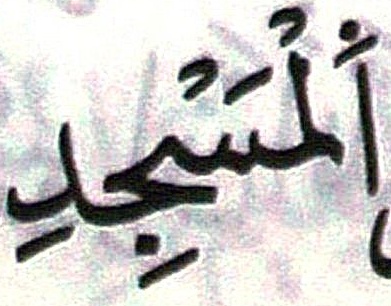 ٱلْمَسْجِدِ